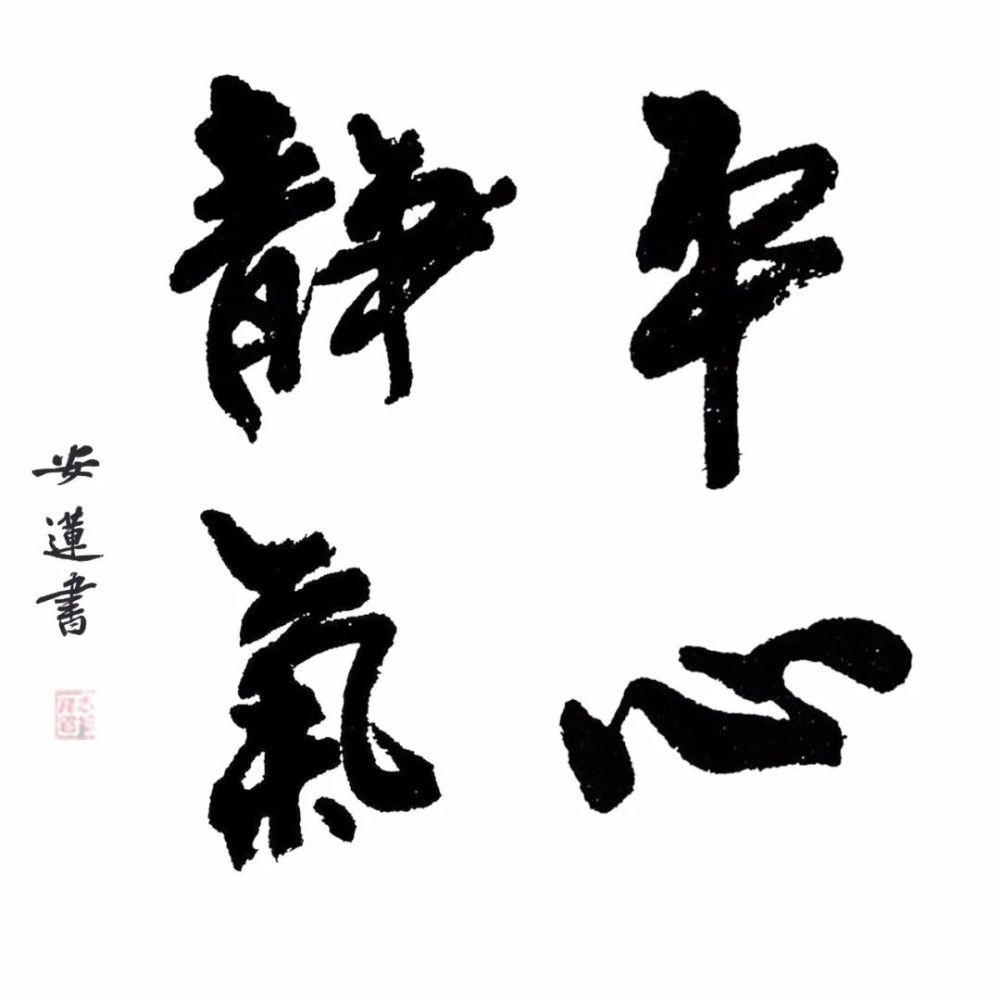 平心
静氣
安蓮書